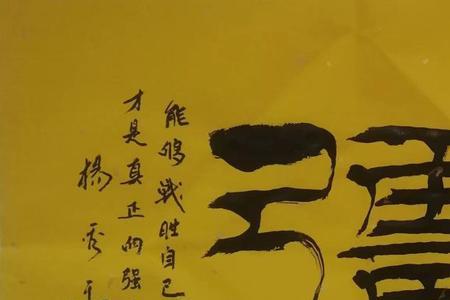 能够战胜自己
才是真正的强
楊秀